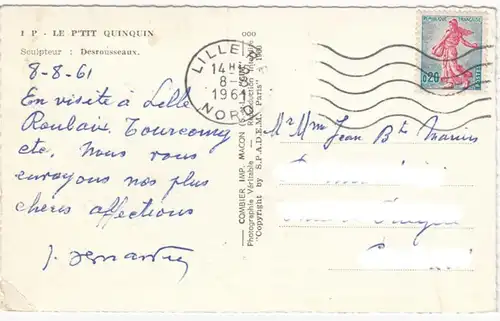 I P - LE P'TIT QUINQUIN
Sculpteur : Desrousseaux.
8-8-61
En visite à Lille
Roubaix, Tourcoing
etc. Nous vous
envoyons nos plus
chères affections
COMBIER IMP. MACON
Photographie Véritable
"Copyright by S.P.A.D.E.M. Paris" - 1960
000
LILLE
14H
8-8
1961
NORD
REPUBLIQUE FRANÇAISE
0,20
POSTES
Mr Mme Jean Bte Marius